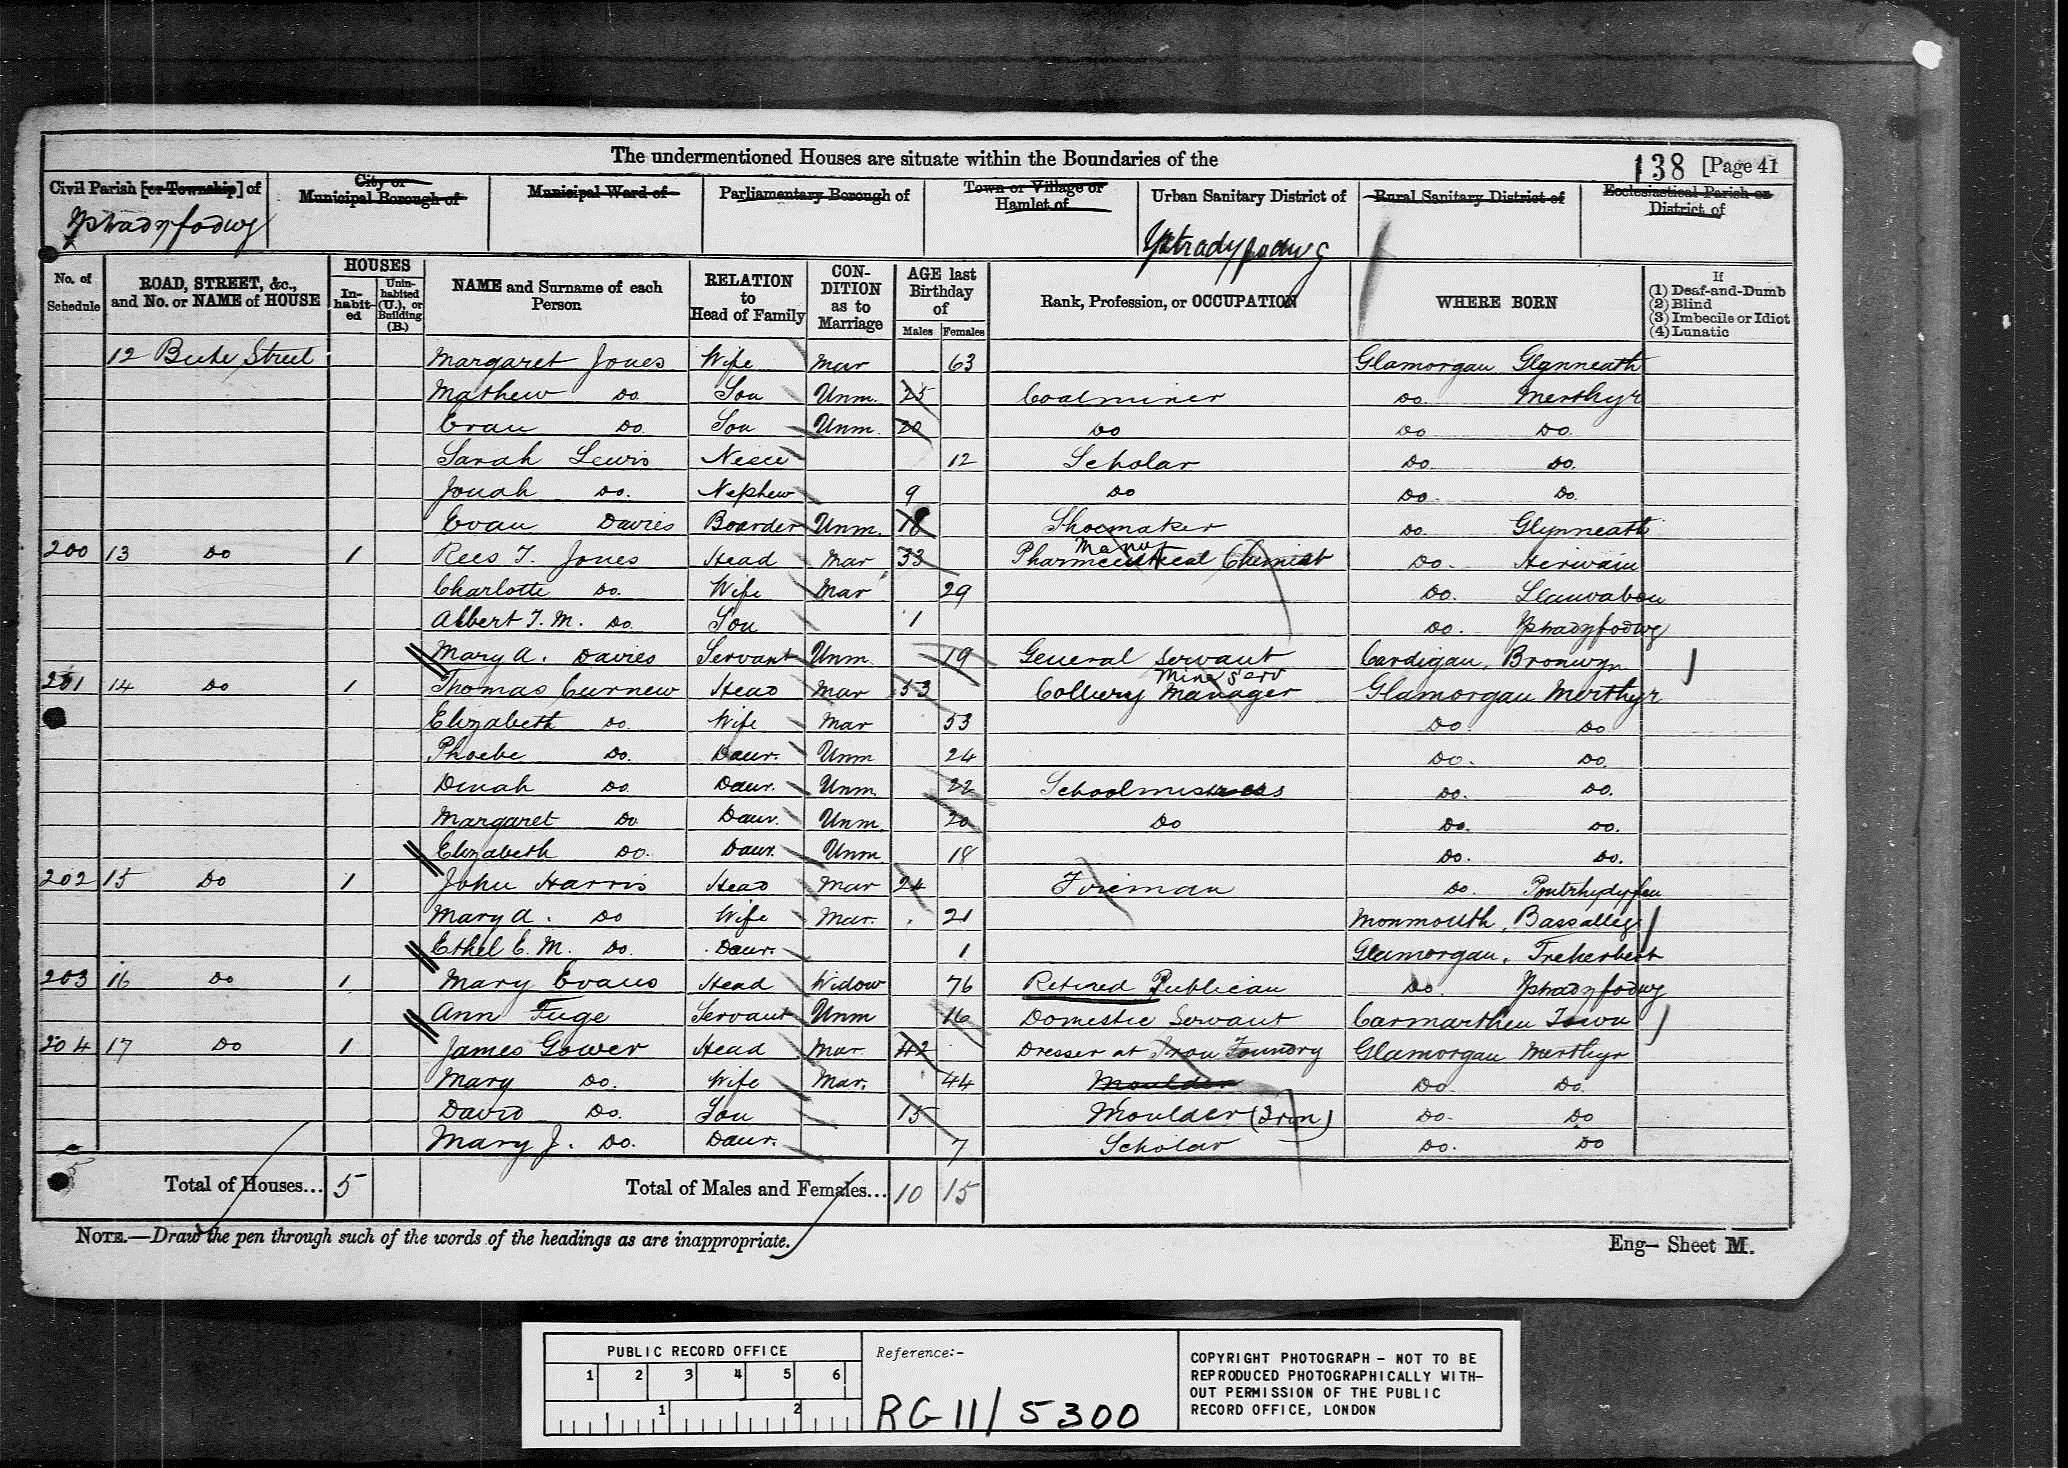 The undermentioned Houses are situate within the Boundaries of the
138 [Page 41
Civil Parish [or Township] of
City or Municipal Borough of
Municipal Ward of
Parliamentary Borough of
Town or Village or Hamlet of
Urban Sanitary District of
Rural Sanitary District of
Ecclesiastical Parish or District of
Ystradyfodwg
Ystradyfodwg
No. of Schedule
ROAD, STREET, &c., and No. or NAME of HOUSE
HOUSES
In-habit-ed
Unin-habited (U.), or Building (B.)
NAME and Surname of each Person
RELATION to Head of Family
CON-DITION as to Marriage
AGE last Birthday of
Males
Females
Rank, Profession, or OCCUPATION
WHERE BORN
If
(1) Deaf-and-Dumb
(2) Blind
(3) Imbecile or Idiot
(4) Lunatic
12 Bute Street Margaret Jones Wife Mar 63 Glamorgan Glynneath
Mathew Do. Son Unm. 25 Coalminer Do. Merthyr
Evan Do. Son Unm. 20 Do Do Do.
Sarah Lewis Neice 12 Scholar Do. Do.
Jonah Do. Nephew 9 Do Do. Do.
Evan Davies Boarder Unm. 18 Shoemaker Do. Glynneath
200 13 Do 1 Rees T. Jones Head Mar 33 Pharmceutical Chemist Do. Herwain
Manuf
Charlotte Do. Wife Mar 29 Do. Llanvabon
Albert T. M. Do. Son 1 Do. Ystradyfodwg
Mary A. Davies Servant Unm. 19 General Servant Cardigan, Bronwyn
201 14 Do 1 Thomas Curnew Head Mar 53 Colliery Manager Glamorgan Merthyr
Mine Serv
Elizabeth Do. Wife Mar 53 Do. Do
Phoebe Do. Daur. Unm 24 Do. Do.
Dinah Do Daur. Unm. 22 Schoolmistress Do. Do.
Margaret Do Daur. Unm. 20 Do Do. Do.
Elizabeth Do. Daur. Unm 18 Do. Do.
202 15 Do 1 John Harris Head Mar 24 Fireman Do. Pontrhydyfen
Mary A. Do Wife Mar. 21 Monmouth, Bassalleg
Ethel E. M. Do. Daur. 1 Glamorgan, Treherbert
203 16 Do 1 Mary Evans Head Widow 76 Retired Publican Do. Ystradyfodwg
Ann Fuge Servant Unm 16 Domestic Servant Carmarthen Town
204 17 Do 1 James Gower Head Mar. 42 Dresser at Iron Foundry Glamorgan Merthyr
Mary Do. Wife Mar. 44 Moulder Do. Do.
David Do. Son 15 Moulder (Iron) Do. Do
Mary J. Do. Daur. 7 Scholar Do. Do
5
Total of Houses... 5 Total of Males and Females... 10 15
NOTE.—Draw the pen through such of the words of the headings as are inappropriate.
Eng— Sheet M.
PUBLIC RECORD OFFICE
1 2 3 4 5 6
1 2
Reference:-
RG 11/5300
COPYRIGHT PHOTOGRAPH – NOT TO BE
REPRODUCED PHOTOGRAPHICALLY WITH-
OUT PERMISSION OF THE PUBLIC
RECORD OFFICE, LONDON